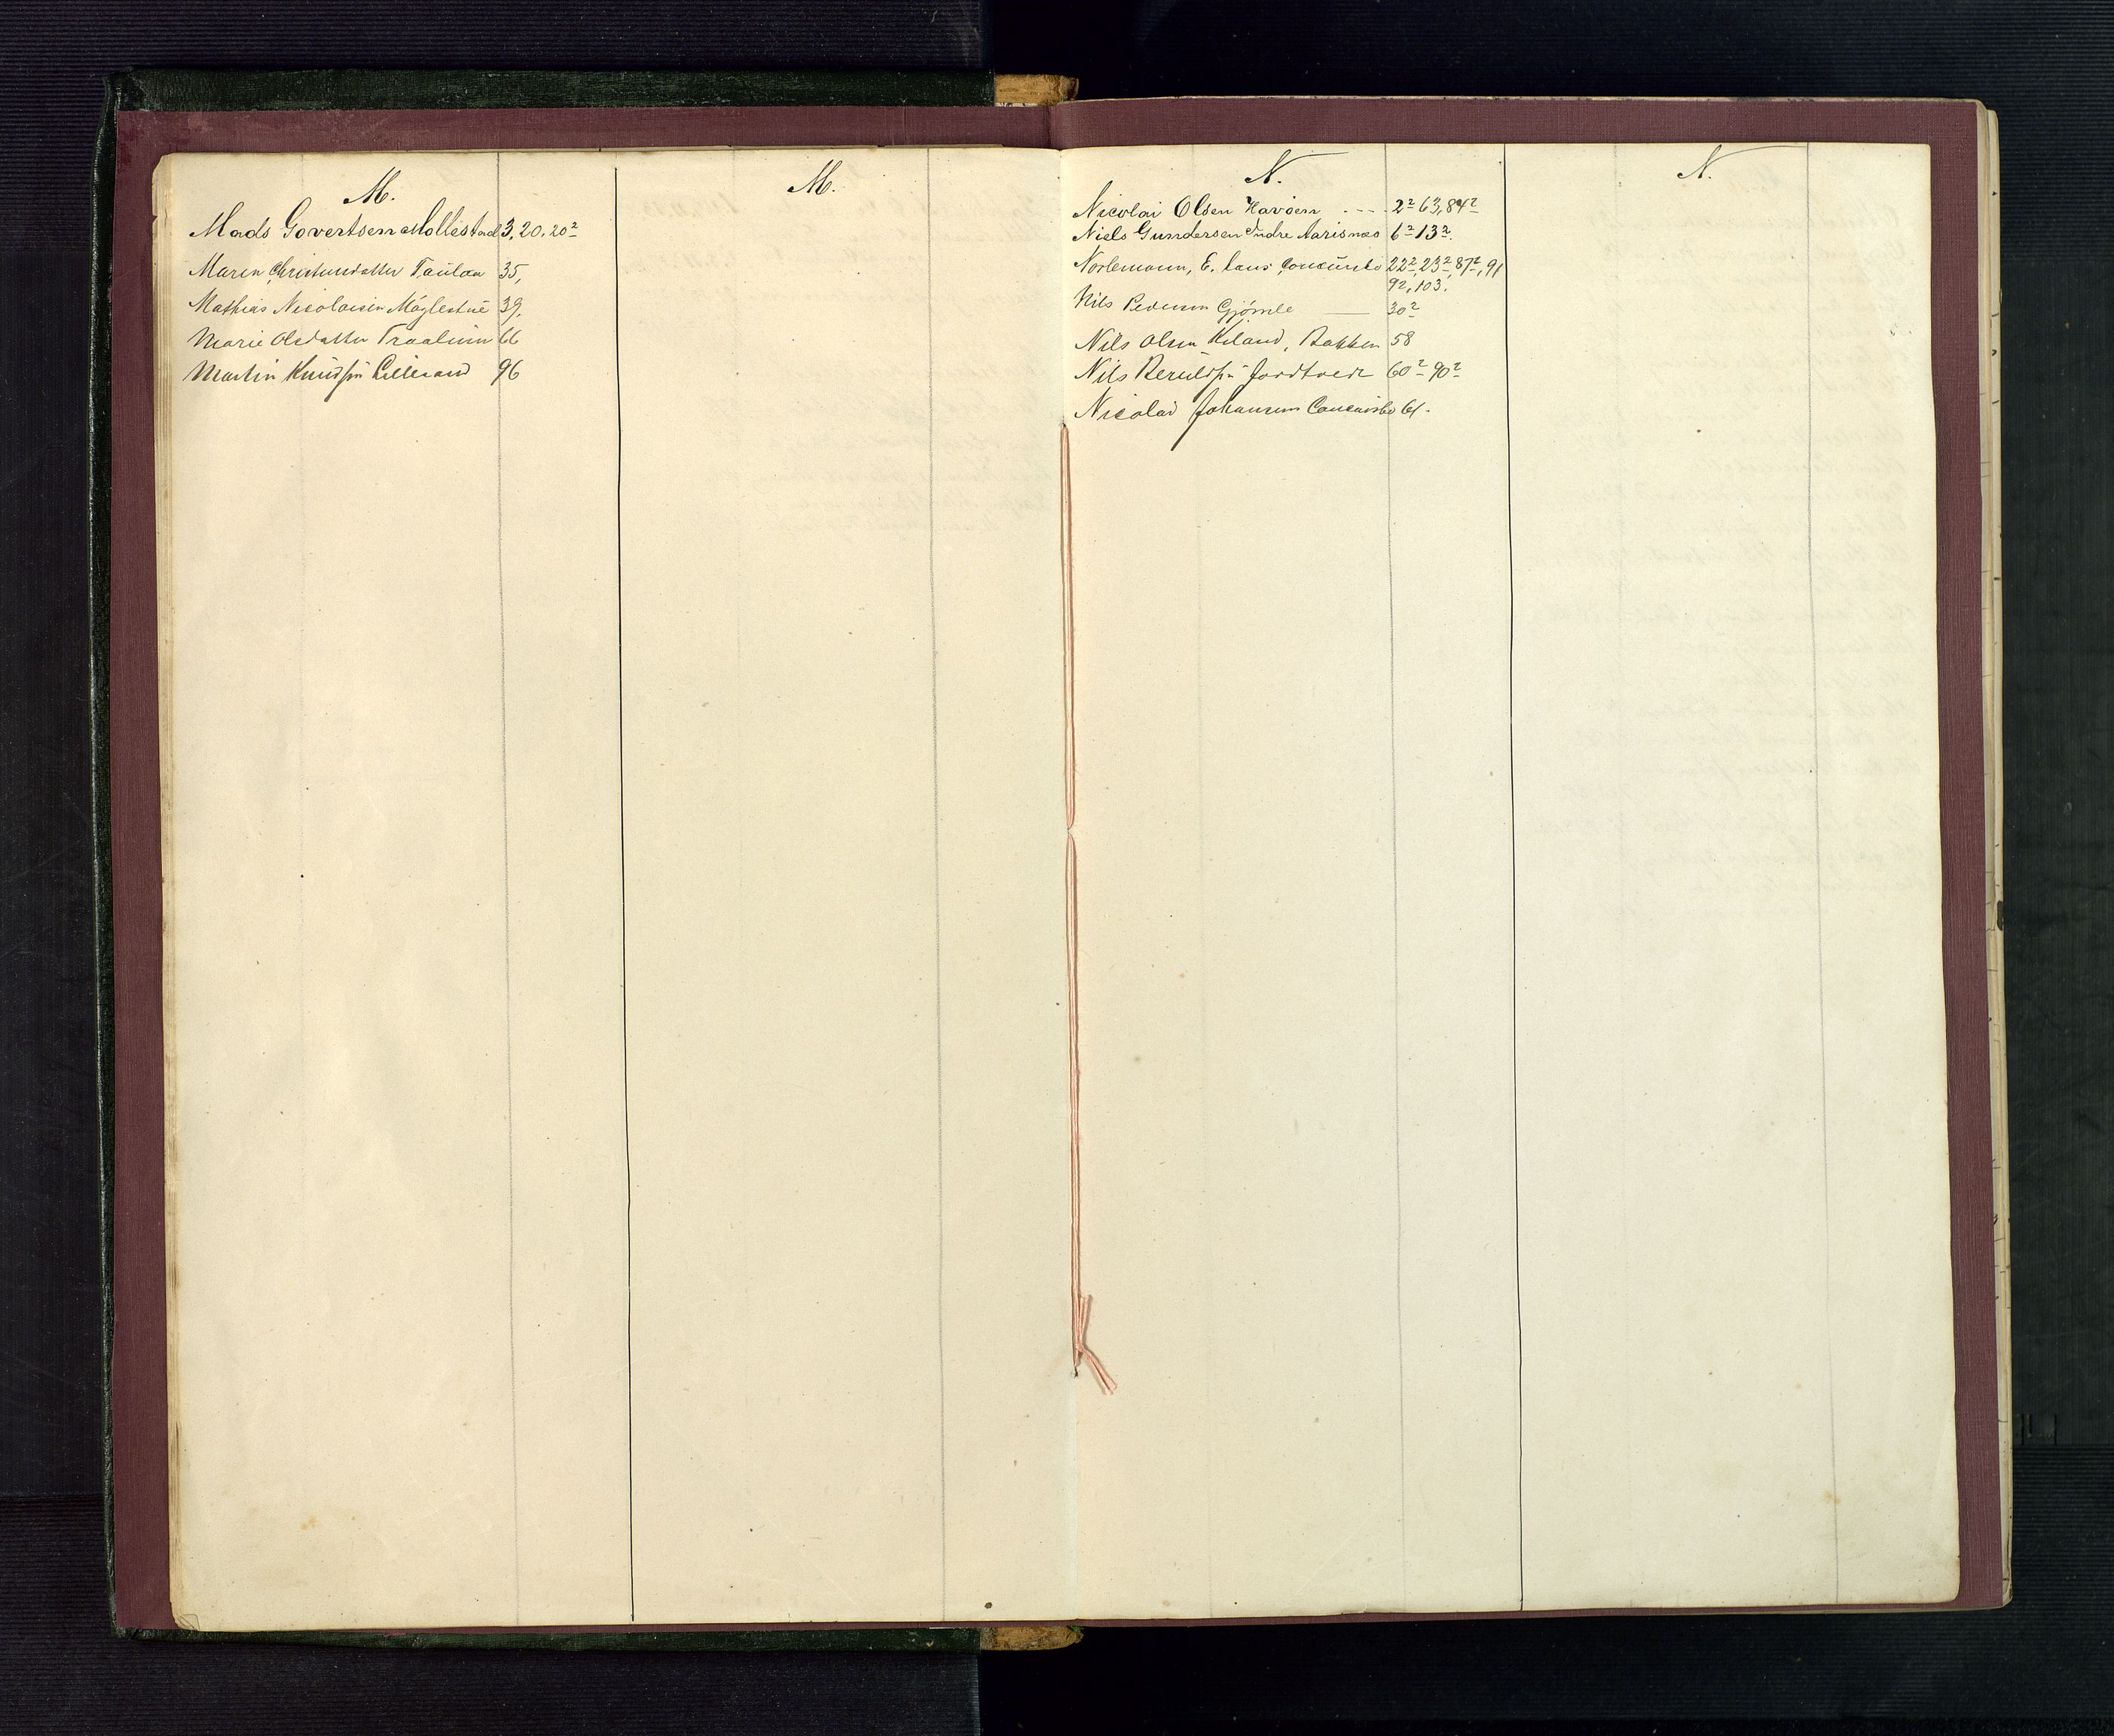 M.
Mads Govertsen Mollestad 3, 20. 20²
Maren Christensdatter Taulan 35,
Mathias Nicolaisen Møglestue 39,
Marie Olsdatter Traalum 66
Martin Knudsen Lillesand 96
M.
N.
Nicolai Olsen Havøen - - - 2² 63, 84²
Niels Gundersen Indre Aarisnæs 6² 13².
Norlemann, E. hans Concursbo 22², 23², 87², 91
92, 103.
Nils Pedersen Gjømle — 30²
Nils Olsen Kiland, Bakken 58
Nils Beruldsen 60² 90²
Nicolai Johansen Concursbo 61.
N.